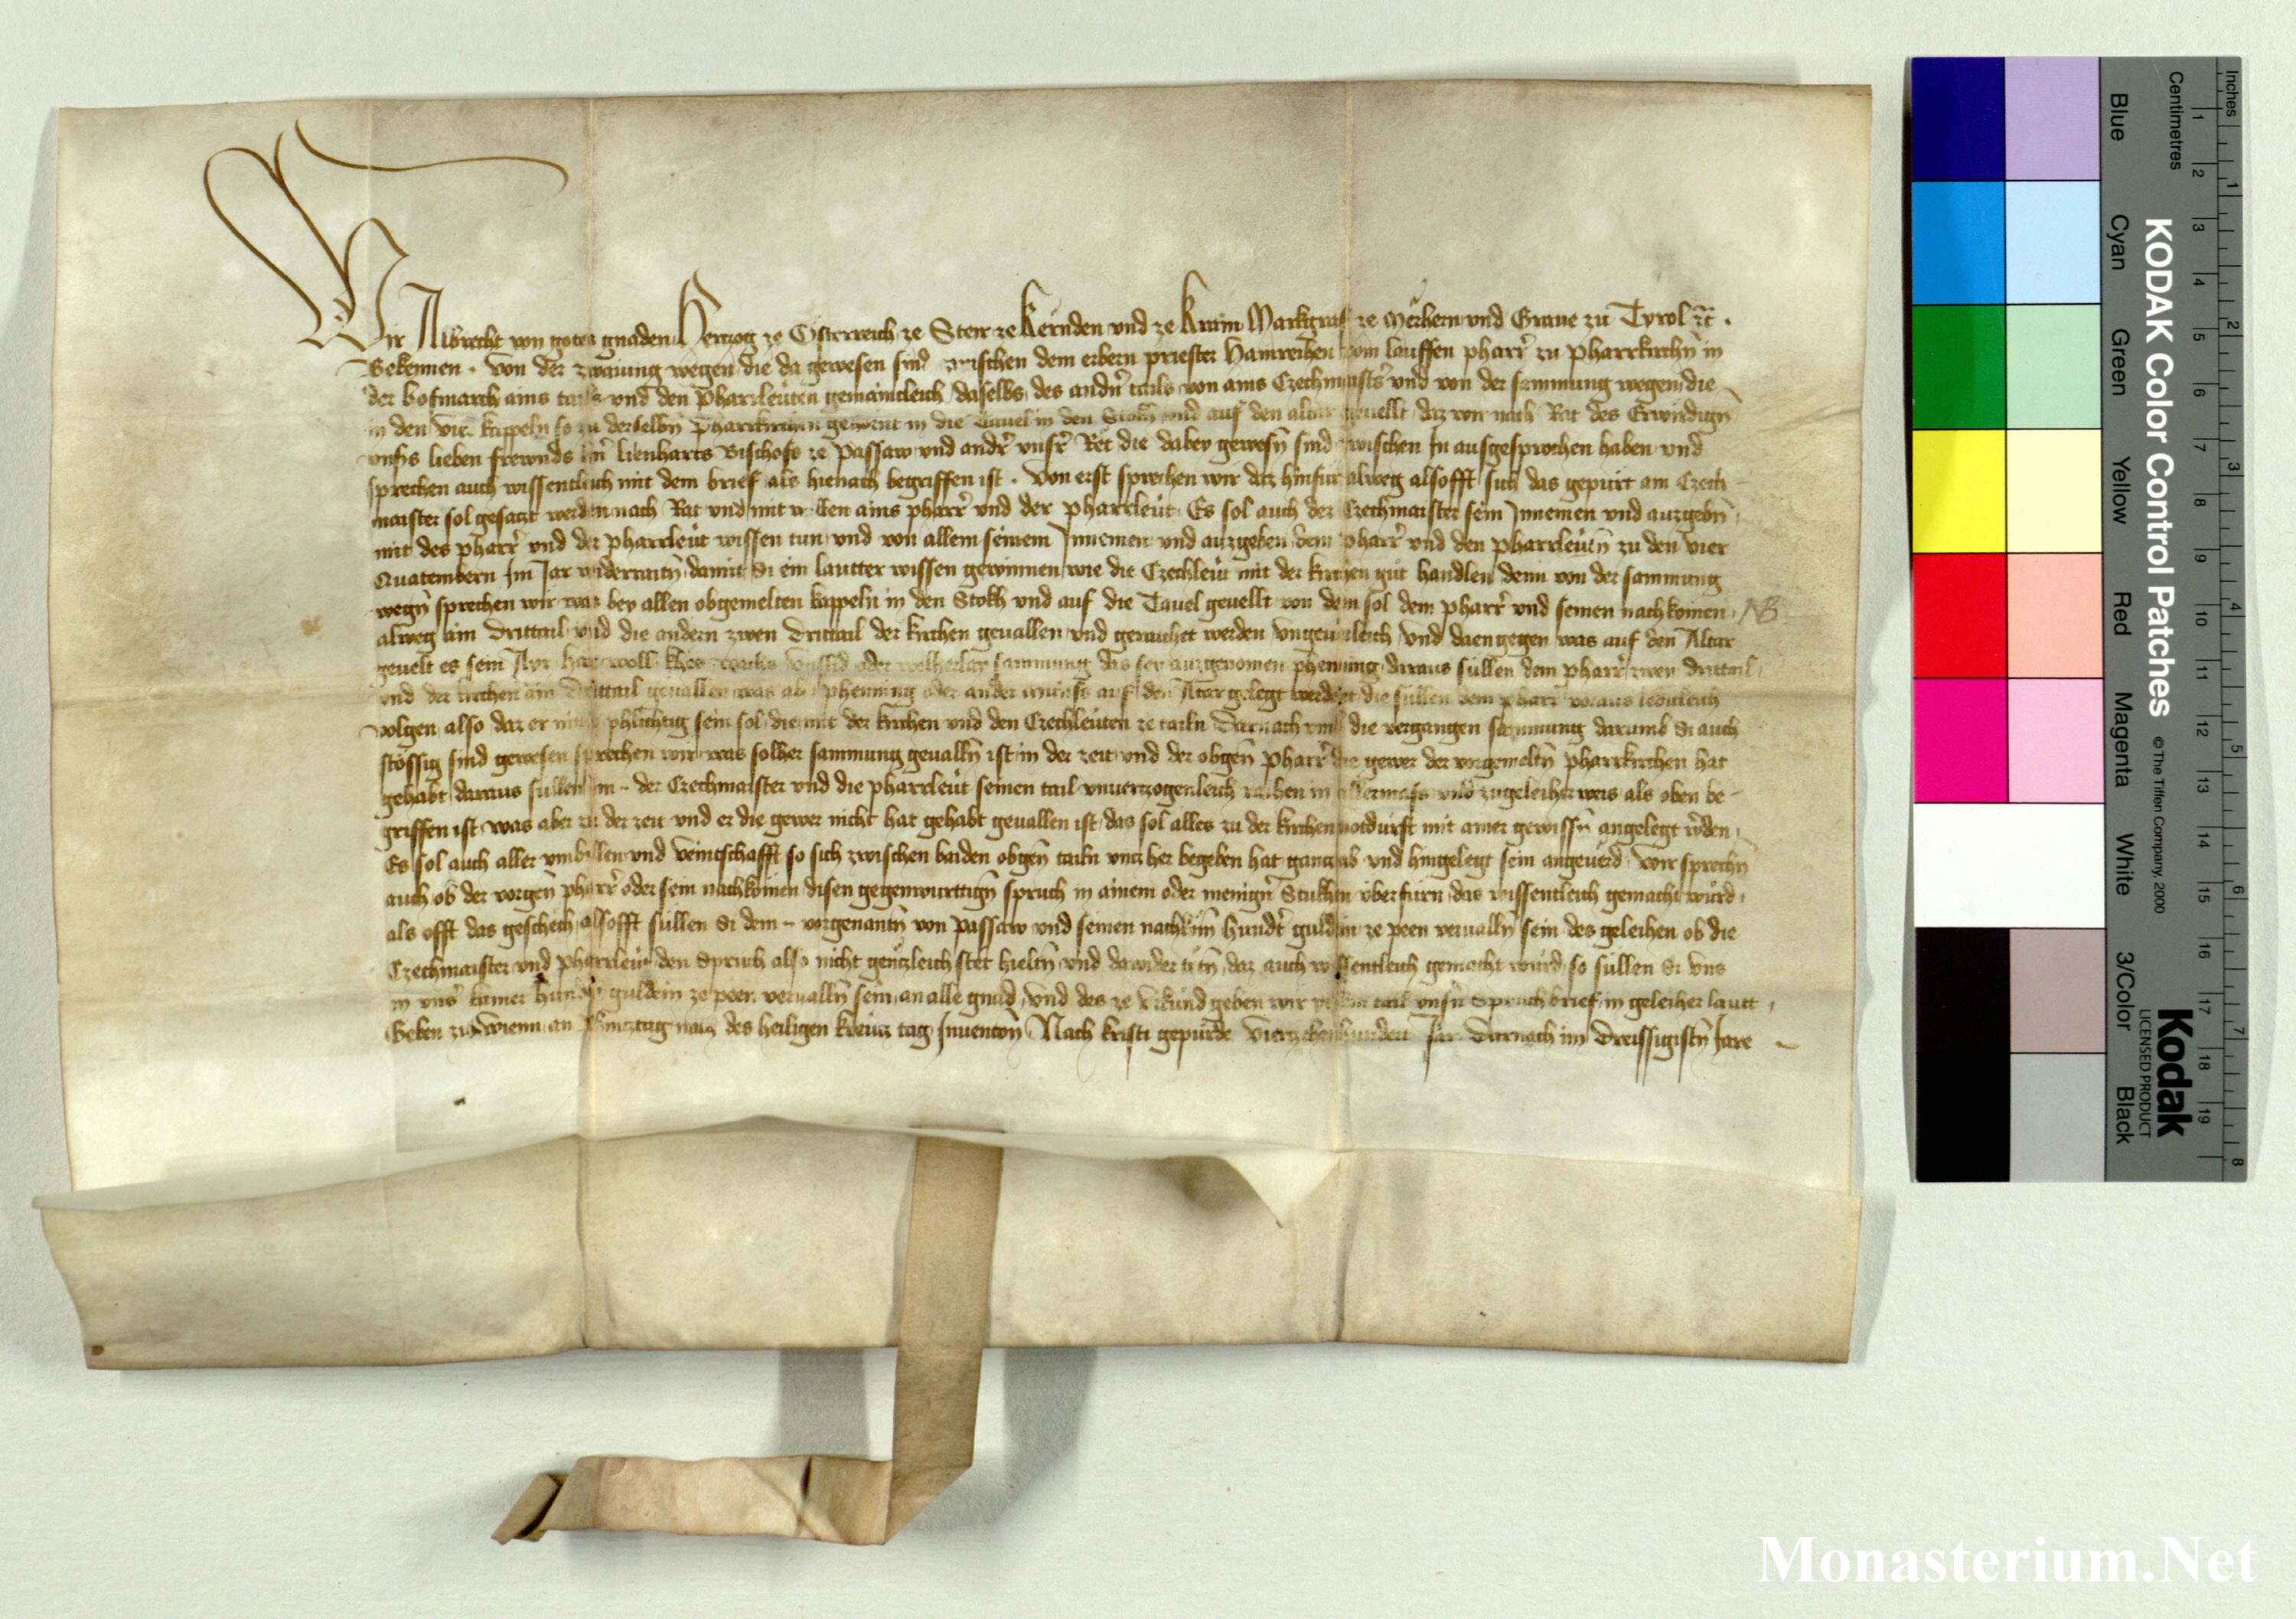 Wir Albrecht von gotes gnaden Herczog ze Österreich ze Steir ze Kernden vnd ze Krain Markgraf ze Merhern vnd Graue zu Tyrol etc.
Bekennen. Von der zwaiung wegen die da gewesen sind zwischen dem erbern priester Hainreihen vom lauffen pharrer zu pharrkirchn in
der hofmarch ains tails vnd den pharrleuten gemaincleich daselbs des andern tails von ains Czechmaisters vnd von der sammung wegen die
in den vier kappeln so zu derselbn pharrkirchen gehörent in die Tauel in den Stokh vnd auf den altar geuellt daz wir nach Rat des Erwirdign
vnsers lieben frewnds hern lienharts Bischofs ze Passaw vnd andrer vnsrer Ret die dabey gewesn sind zwischen In ausgesprochen haben vnd
sprechen auch wissentleich mit dem brief als hienach begriffen ist. Von erst sprechen wir daz hinfür alweg alsofft sich das gepürt ain Czech-
maister sol gesaczt werden nach Rat vnd mit willen ains pharrer vnd der pharrleut Es sol auch der Czechmaister sein Innemen vnd auzgebn
mit des pharrer vnd der pharrleut wissen tun vnd von allem seinem Innemen vnd auzgeben dem pharrer vnd den pharrleuten zu den vier
Quatembern Im Jar widerraitn damit Si ein lautter wissen gewinnen wie die Czechleut mit der kirchen gut handlen denn von der sammung
wegn sprechen wir was bey allen obgemelten kappeln in den Stokh vnd auf die Tauel geuellt von dem sol dem pharrer vnd seinen nachkomen NB
alweg ain drittail vnd die andern zwen drittail der kirchen geuallen vnd geraichet werden vngeuerleich vnd daengegen was auf den Altar
geuelt es sein Ayr har woll khes wachs oder welherlay sammung das sey auzgenomen phenning daraus sullen dem pharrer zwen drittail
vnd der kirchen ain drittail geuallen was aber phenning oder ander auf den Altar gelegt werdent die sullen dem pharrer voraus ledicleich
volgen also daz er nicht phlichtig sein sol die mit der kirchen vnd den Czechleuten ze tailn Darnach vmb die vergangen sammung darumb Si auch
stössig sind gewesen sprechen wir was solher sammung geualln ist in der zeit vnd der obgen pharrer die gewer der vorgemeltn pharrkirchen hat
gehabt daraus sullen im der Czechmaister vnd die pharrleut seinen tail vnuerczogenleich raihen in aller mass vnd zugeleiher weis als oben be-
griffen ist was aber zu der zeit vnd er die gewer nicht hat gehabt geuallen ist das sol alles zu der kirchen notdurft mit ainer gewissn angelegt werden
Es sol auch aller vmbillen vnd veintschafft so sich zwischen baiden obgen tailn vncz her begeben hat gancz ab vnd hingelegt sein angeuerd wir sprechn
auch ob der vorgen pharrer oder sein nachkomen disen gegenwurttign spruch in ainem oder menign Stukhen überfurn das wissentleich gemacht würd
als offt das geschech alsofft sullen Si dem vorgenantn von Passaw vnd seinen nachkomn hundert guldein ze peen veruallen sein des geleihen ob die
Czechmaister vnd pharrleut den Spruch also nicht genczleich stet hieltn vnd dawider tetn daz auch wissentleich gemacht würd so sullen Si vns
in vnser kamer hundert guldein ze peen veruallen sein an alle gnad vnd des ze vrkund geben wir yedem tail vnsern Spruchbrief in geleiher lautt
Geben zu Wienn an Phincztag nach des heiligen kreucz tag Inuentom Nach kristi gepurde vierczehenhundert Jar Darnach im Dreissigistn Jare
Inches Centimetres
KODAK Color Control Patches © The Tiffen Company, 2000
Kodak LICENSED PRODUCT
Blue Cyan Green Yellow Red Magenta White 3/Color Black
1 2 3 4 5 6 7 8 9 10 11 12 13 14 15 16 17 18 19
1 2 3 4 5 6 7 8
Monasterium.Net